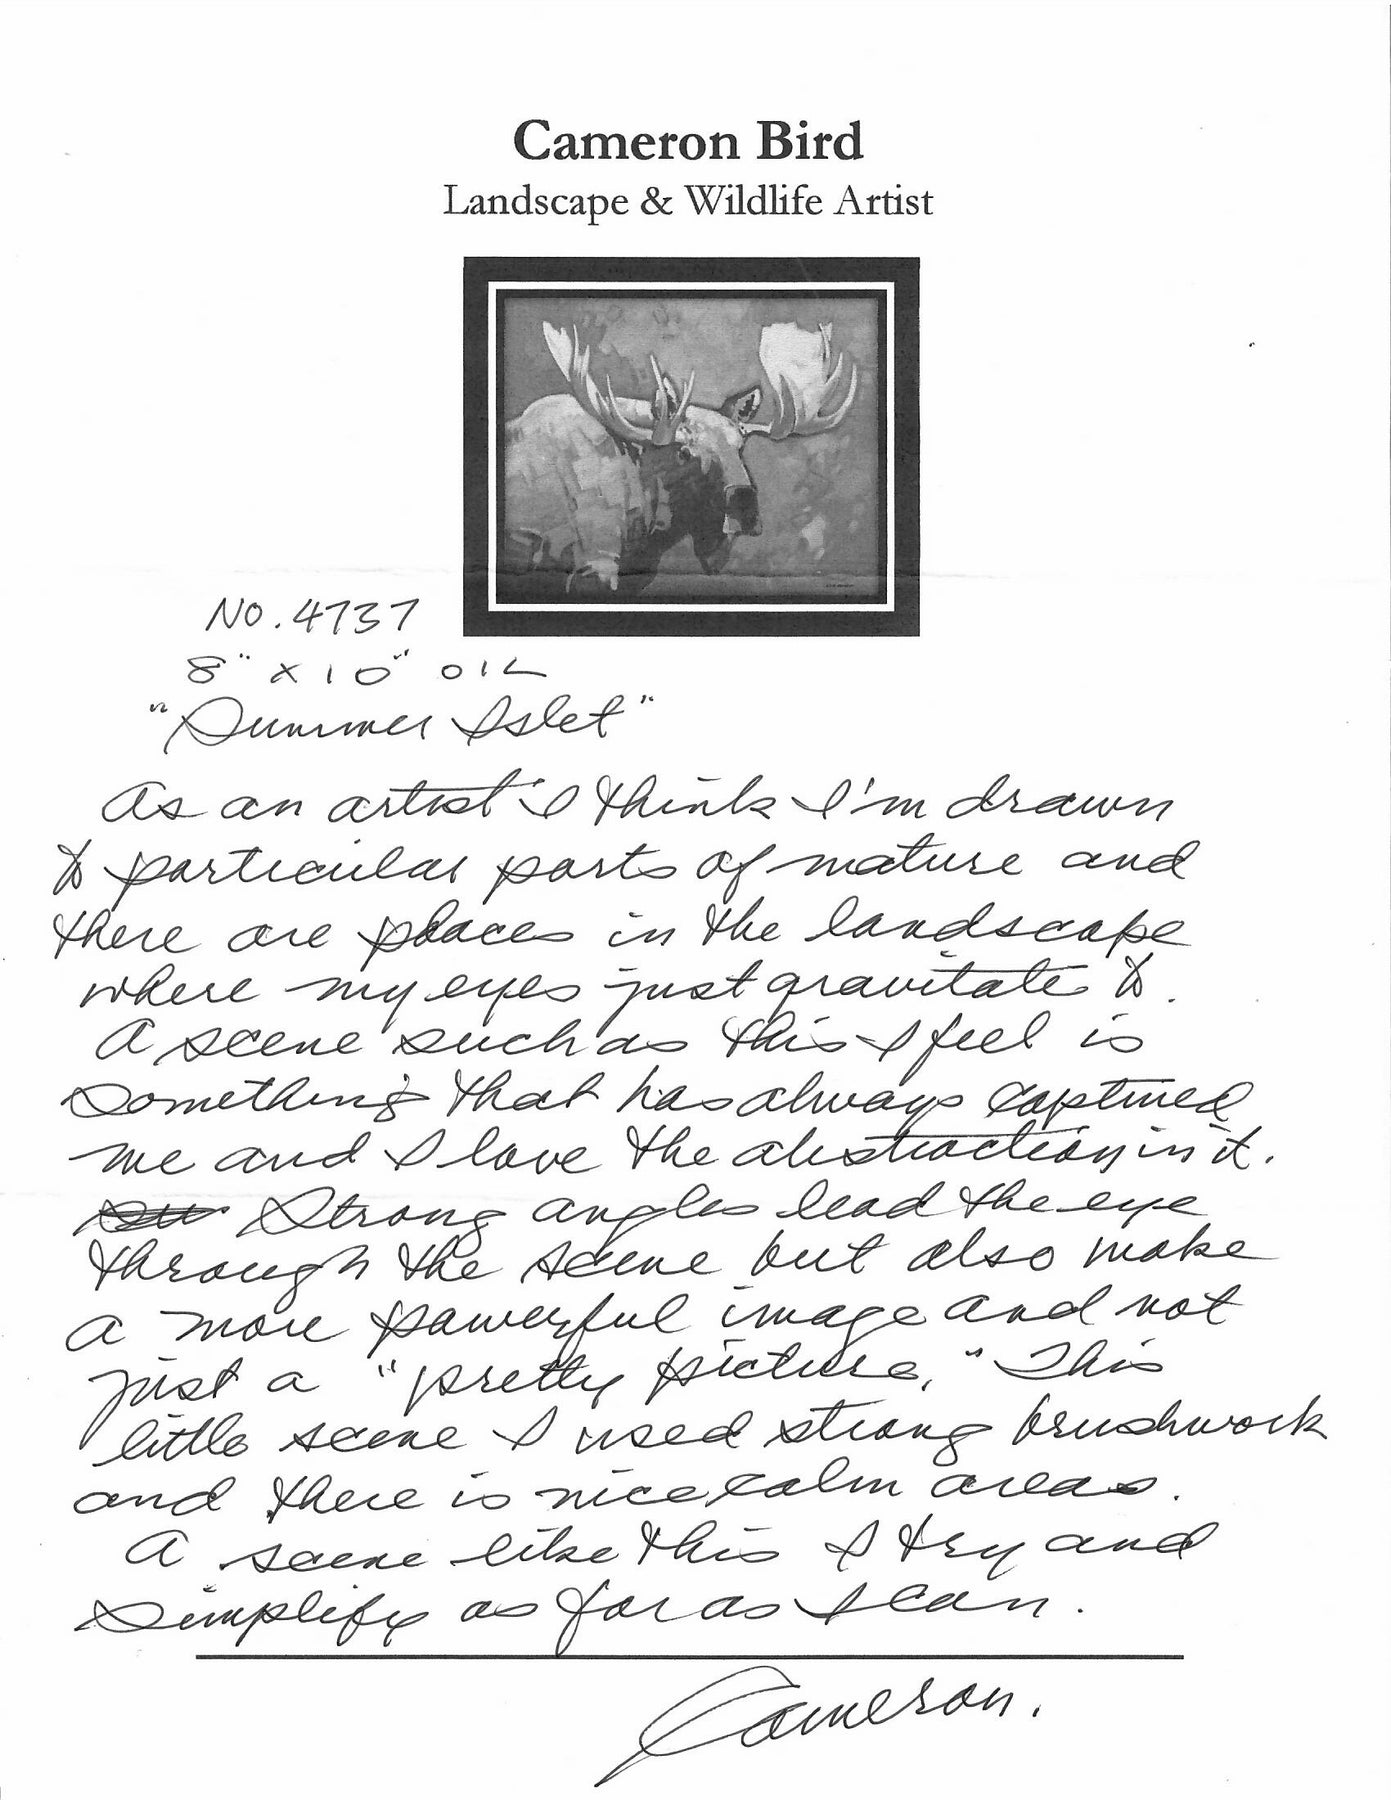 Cameron Bird
Landscape & Wildlife Artist
NO. 4737
8" x 10" OIL
"Summer Islet"
As an artist I think I'm drawn
to particular parts of nature and
there are places in the landscape
where my eyes just gravitate to.
A scene such as this I feel is
something that has always captured
me and I love the abstraction in it.
Strong angles lead the eye
through the scene but also make
a more powerful image and not
just a "pretty picture." This
little scene I used strong brushwork
and there is nice calm areas.
A scene like this I try and
simplify as far as I can.
Cameron.